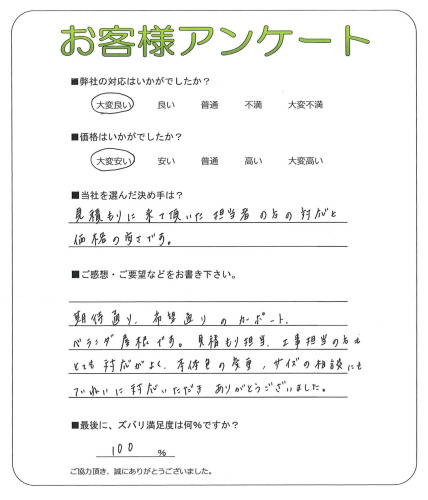 お客様アンケート
■弊社の対応はいかがでしたか？
大変良い 良い 普通 不満 大変不満
■価格はいかがでしたか？
大変安い 安い 普通 高い 大変高い
■当社を選んだ決め手は？
見積もりに来て頂いた担当者の方の対応と
価格の安さです。
■ご感想・ご要望などをお書き下さい。
期待通り、希望通りのカーポート、
ベランダ屋根です。見積もり担当、工事担当の方も
とても対応がよく、本体色の変更、サイズの相談にも
ていねいに対応いただき ありがとうございました。
■最後に、ズバリ満足度は何％ですか？
100 ％
ご協力頂き、誠にありがとうございました。